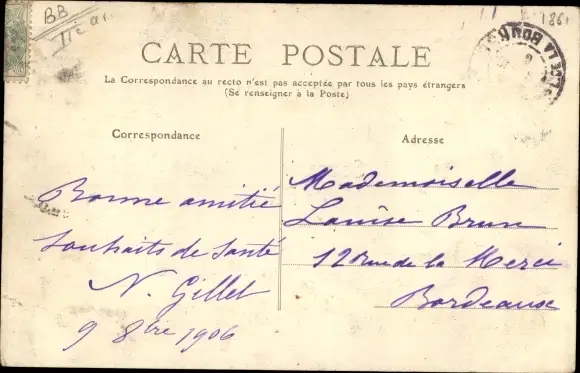 BB
11e ar.
186
CARTE POSTALE
La Correspondance au recto n'est pas acceptée par tous les pays étrangers
(Se renseigner à la Poste)
Correspondance
Bonne amitié
Souhaits de Santé
N. Gillet
9 8bre 1906
Adresse
Mademoiselle
Louise Brun
12 Rue de la Merci
Bordeaux